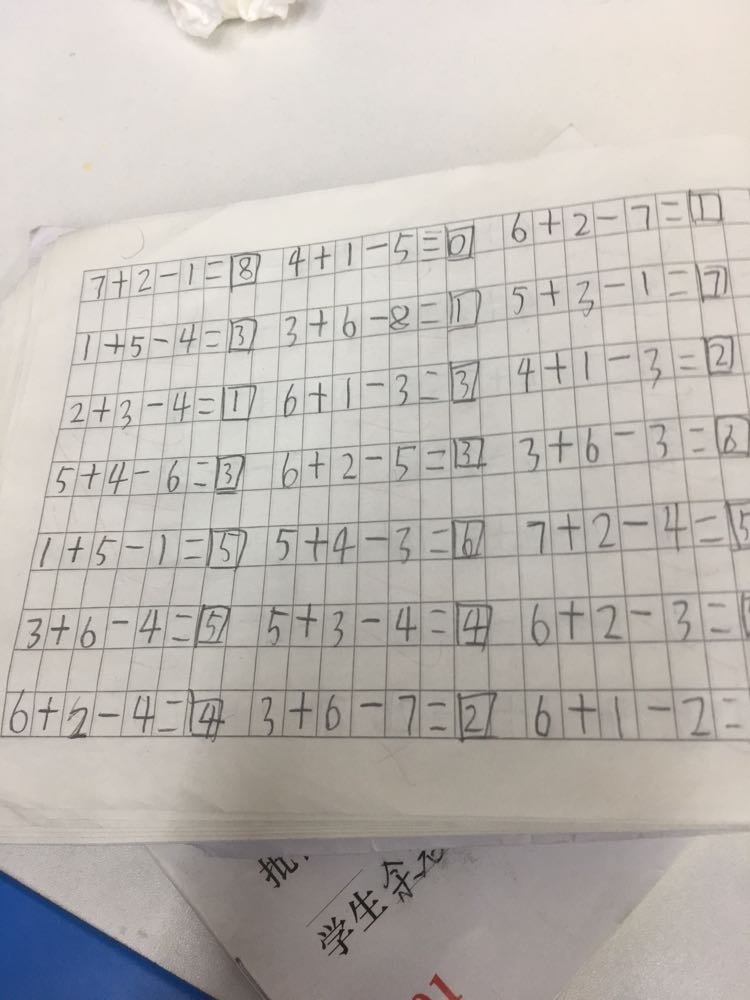 7+2-1=8 4+1-5=0 6+2-7=1
1+5-4=3 3+6-8=1 5+3-1=7
2+3-4=1 6+1-3=3 4+1-3=2
5+4-6=3 6+2-5=3 3+6-3=6
1+5-1=5 5+4-3=6 7+2-4=5
3+6-4=5 5+3-4=4 6+2-3=
6+2-4=4 3+6-7=2 6+1-2=
批
学生
01